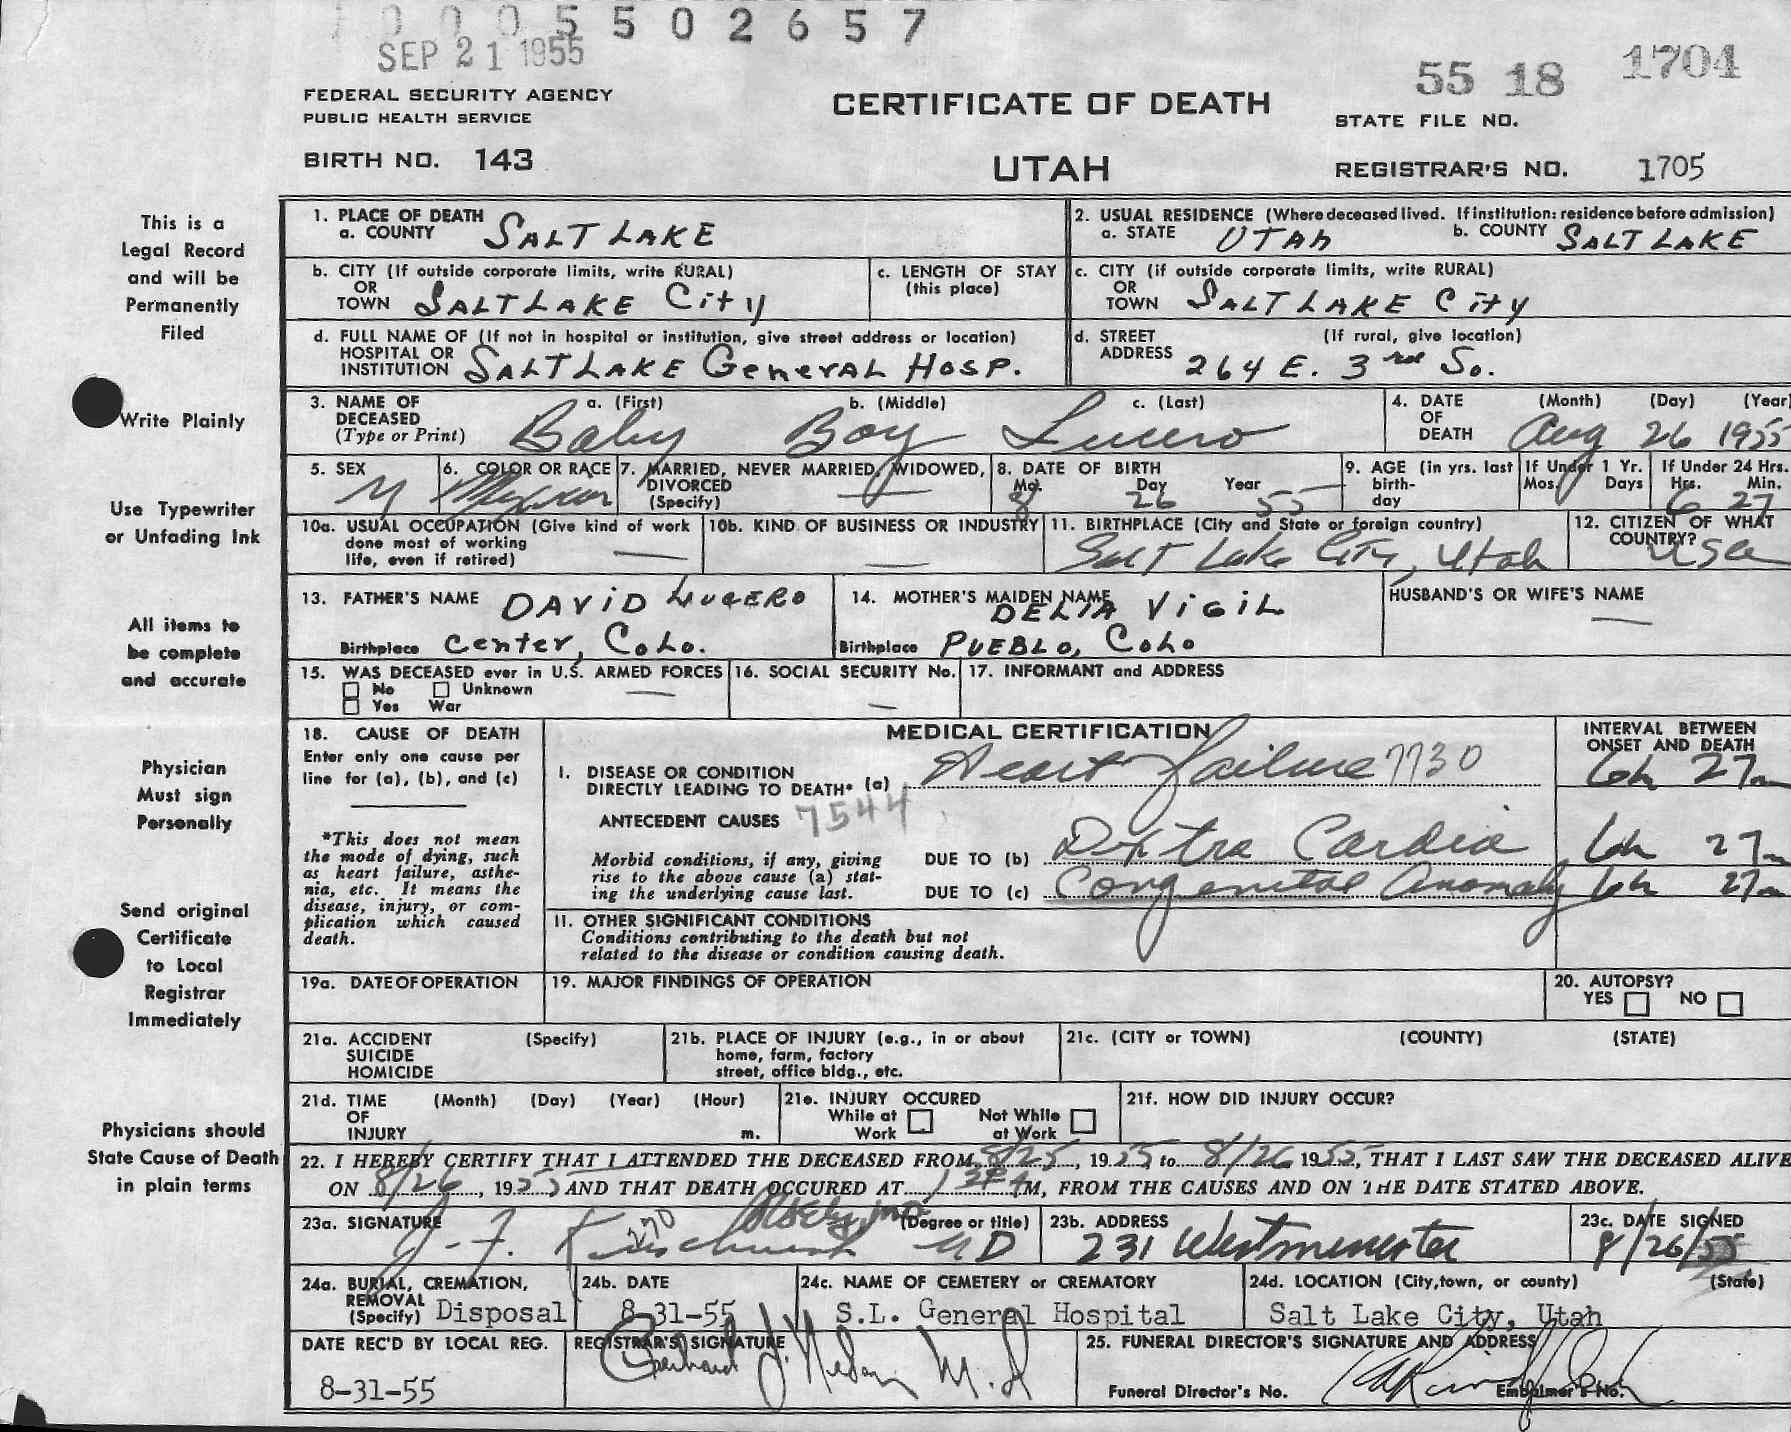 0 0 0 5 5 0 2 6 5 7
SEP 21 1955
55 18 1704
FEDERAL SECURITY AGENCY
PUBLIC HEALTH SERVICE
CERTIFICATE OF DEATH
STATE FILE NO.
BIRTH NO. 143
UTAH
REGISTRAR'S NO. 1705
This is a
Legal Record
and will be
Permanently
Filed
Write Plainly
Use Typewriter
or Unfading Ink
All items to
be complete
and accurate
Physician
Must sign
Personally
Send original
Certificate
to Local
Registrar
Immediately
Physicians should
State Cause of Death
in plain terms
1. PLACE OF DEATH
a. COUNTY SALT LAKE
2. USUAL RESIDENCE (Where deceased lived. If institution: residence before admission)
a. STATE UTAh b. COUNTY SALT LAKE
b. CITY (If outside corporate limits, write RURAL)
OR
TOWN SALT LAKE City
c. LENGTH OF STAY
(this place)
c. CITY (if outside corporate limits, write RURAL)
OR
TOWN SALT LAKE City
d. FULL NAME OF (If not in hospital or institution, give street address or location)
HOSPITAL OR
INSTITUTION SALT LAKE GeneRAL HOSP.
d. STREET (If rural, give location)
ADDRESS 264 E. 3rd So.
3. NAME OF a. (First) b. (Middle) c. (Last)
DECEASED
(Type or Print) Baby Boy Lucero
4. DATE (Month) (Day) (Year)
OF
DEATH Aug 26 1955
5. SEX M
6. COLOR OR RACE Mexican
7. MARRIED, NEVER MARRIED, WIDOWED,
DIVORCED
(Specify) —
8. DATE OF BIRTH
Mo. Day Year
8 26 55
9. AGE (in yrs. last
birth-
day
If Under 1 Yr.
Mos. Days
If Under 24 Hrs.
Hrs. Min.
6 27
10a. USUAL OCCUPATION (Give kind of work
done most of working
life, even if retired) —
10b. KIND OF BUSINESS OR INDUSTRY
—
11. BIRTHPLACE (City and State or foreign country)
Salt Lake City, Utah
12. CITIZEN OF WHAT
COUNTRY?
USA
13. FATHER'S NAME DAViD LUCERO
Birthplace Center, COLO.
14. MOTHER'S MAIDEN NAME
DELIA ViGiL
Birthplace PUEBLO, COLO
HUSBAND'S OR WIFE'S NAME
—
15. WAS DECEASED ever in U.S. ARMED FORCES
No Unknown —
Yes War
16. SOCIAL SECURITY No.
—
17. INFORMANT and ADDRESS
18. CAUSE OF DEATH
Enter only one cause per
line for (a), (b), and (c)
*This does not mean
the mode of dying, such
as heart failure, asthe-
nia, etc. It means the
disease, injury, or com-
plication which caused
death.
MEDICAL CERTIFICATION
INTERVAL BETWEEN
ONSET AND DEATH
I. DISEASE OR CONDITION
DIRECTLY LEADING TO DEATH* (a) Heart failure 7730 6h 27m
ANTECEDENT CAUSES 7544
Morbid conditions, if any, giving
rise to the above cause (a) stat-
ing the underlying cause last.
DUE TO (b) Dextra Cardia 6h 27m
DUE TO (c) Congenital Anomaly 6h 27m
II. OTHER SIGNIFICANT CONDITIONS
Conditions contributing to the death but not
related to the disease or condition causing death.
19a. DATE OF OPERATION
19. MAJOR FINDINGS OF OPERATION
20. AUTOPSY?
YES NO
21a. ACCIDENT (Specify)
SUICIDE
HOMICIDE
21b. PLACE OF INJURY (e.g., in or about
home, farm, factory
street, office bldg., etc.
21c. (CITY or TOWN) (COUNTY) (STATE)
21d. TIME (Month) (Day) (Year) (Hour)
OF
INJURY m.
21e. INJURY OCCURED
While at Not While
Work at Work
21f. HOW DID INJURY OCCUR?
22. I HEREBY CERTIFY THAT I ATTENDED THE DECEASED FROM 8/25, 1955 to 8/26 1955, THAT I LAST SAW THE DECEASED ALIVE
ON 8/26, 1955 AND THAT DEATH OCCURED AT M, FROM THE CAUSES AND ON THE DATE STATED ABOVE.
23a. SIGNATURE (Degree or title)
J. F. MD
23b. ADDRESS
231 Westminster
23c. DATE SIGNED
8/26/55
24a. BURIAL, CREMATION,
REMOVAL
(Specify) Disposal
24b. DATE
8-31-55
24c. NAME OF CEMETERY or CREMATORY
S.L. General Hospital
24d. LOCATION (City, town, or county) (State)
Salt Lake City, Utah
DATE REC'D BY LOCAL REG.
8-31-55
REGISTRAR'S SIGNATURE
M.D
25. FUNERAL DIRECTOR'S SIGNATURE AND ADDRESS
Funeral Director's No. Embalmer's No.